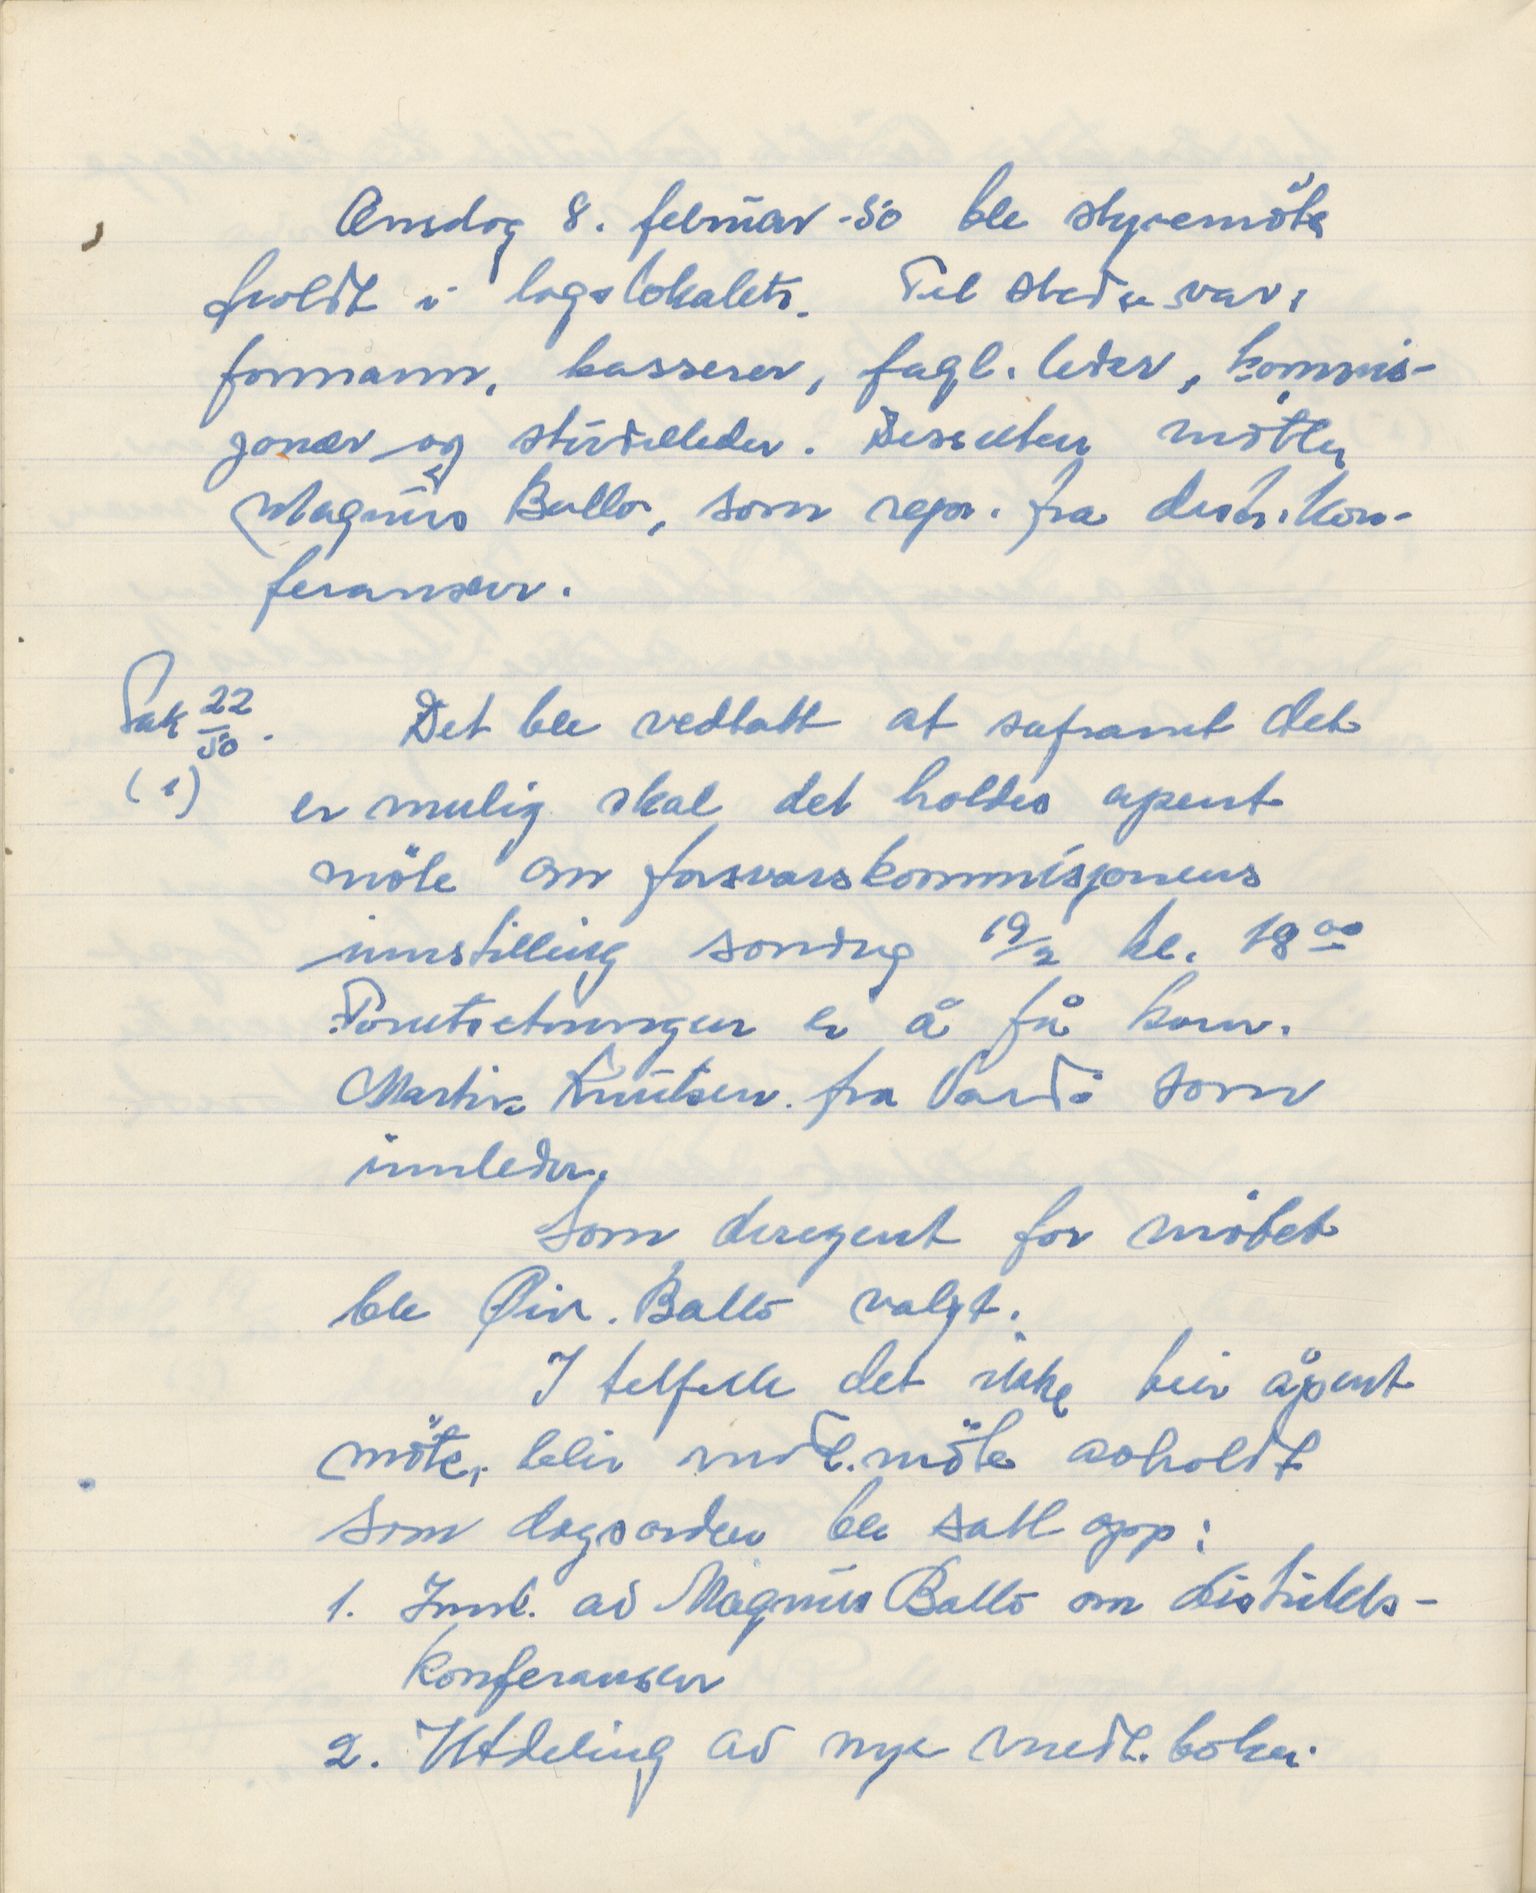 Onsdag 8. februar -50 ble styremöte
holdt i lagslokalet. Til stede var:
formann, kasserer, fagl. leder, kommis-
jonær og studieleder. Dessuten mötte
Magnus Ballo, som repr. fra distr. kon-
feransen.
Sak 22/50. Det ble vedtatt at såframt det
(1) er mulig skal det holdes åpent
möte om forsvarskommisjonens
innstilling søndag 19/2 kl. 18 00
Forutsetningen er å få kam.
Martin Knutsen fra Vardö som
innleder.
Som deregent for mötet
ble Øiv. Ballo valgt.
I telfelle det ikke blir åpent
möte, blir medl.möte avholdt
Som dagsorden ble satt opp:
1. Innl. av Magnus Ballo om distrikts-
konferansen
2. Utdeling av nye medl. böker.